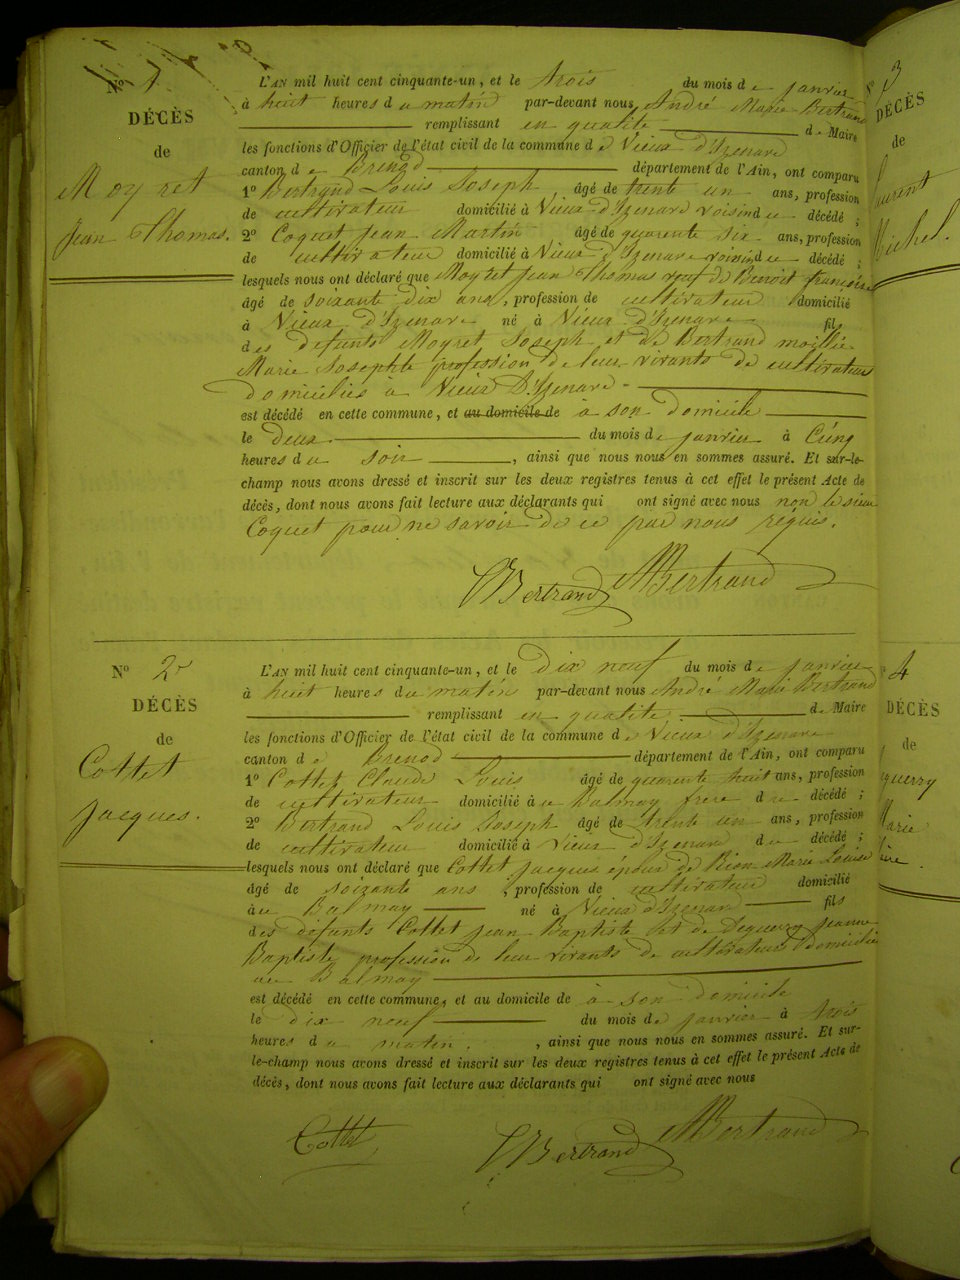 N° 1
DÉCÈS
de
Moyret
Jean Thomas.
L'AN mil huit cent cinquante-un, et le trois du mois de janvier
à huit heures du matin par-devant nous André Marie Bertrand
remplissant en qualité de Maire
les fonctions d'Officier de l'état civil de la commune de Vieux d'Izenave
canton de Brenod département de l'Ain, ont comparu
1° Bertrand Louis Joseph âgé de trente un ans, profession
de cultivateur domicilié à Vieux d'Izenave voisin du décédé ;
2° Coquet Jean Martin âgé de quarente six ans, profession
de cultivateur domicilié à Vieux d'Izenave voisin du décédé ;
lesquels nous ont déclaré que Moyret Jean Thomas veuf de Benoit françoise
âgé de soixante dix ans, profession de cultivateur domicilié
à Vieux d'Izenave né à Vieux d'Izenave fils
des défunts Moyret Joseph et de Bertrand
Marie Josephte profession de leur vivants de cultivateurs
domiciliés à Vieux D'Izenave
est décédé en cette commune, et au domicile de à son domicile
le deux du mois de janvier à Cinq
heures du soir, ainsi que nous nous en sommes assuré. Et sur-le-
champ nous avons dressé et inscrit sur les deux registres tenus à cet effet le présent Acte de
décès, dont nous avons fait lecture aux déclarants qui ont signé avec nous non le sieur
Coquet pour ne savoir de ce par nous réquis.
Bertrand Bertrand
N° 2
DÉCÈS
de
Cottet
Jacques.
L'AN mil huit cent cinquante-un, et le dix neuf du mois de janvier
à huit heures du matin par-devant nous André Marie Bertrand
remplissant en qualité de Maire
les fonctions d'Officier de l'état civil de la commune de Vieux d'Izenave
canton de Brenod département de l'Ain, ont comparu
1° Cottet Claude Louis âgé de quarente huit ans, profession
de cultivateur domicilié à au Balmay frere du décédé ;
2° Bertrand Louis Joseph âgé de trente un ans, profession
de cultivateur domicilié à Vieux d'Izenave du décédé ;
lesquels nous ont déclaré que Cottet Jacques époux de Marie Louise
âgé de soixante ans, profession de cultivateur domicilié
à au Balmay né à Vieux d'Izenave fils
des défunts Cottet Jean Baptiste et de Deguerry Jeanne
Baptiste profession de leur vivants de cultivateurs domiciliés
au Balmay
est décédé en cette commune, et au domicile de à son domicile
le dix neuf du mois de janvier à trois
heures du matin, ainsi que nous nous en sommes assuré. Et sur-
le-champ nous avons dressé et inscrit sur les deux registres tenus à cet effet le présent Acte de
décès, dont nous avons fait lecture aux déclarants qui ont signé avec nous
Cottet Bertrand Bertrand
N° 3
DÉCÈS
de
aurent
Michel.
4
DÉCÈS
de
guerry
Marie